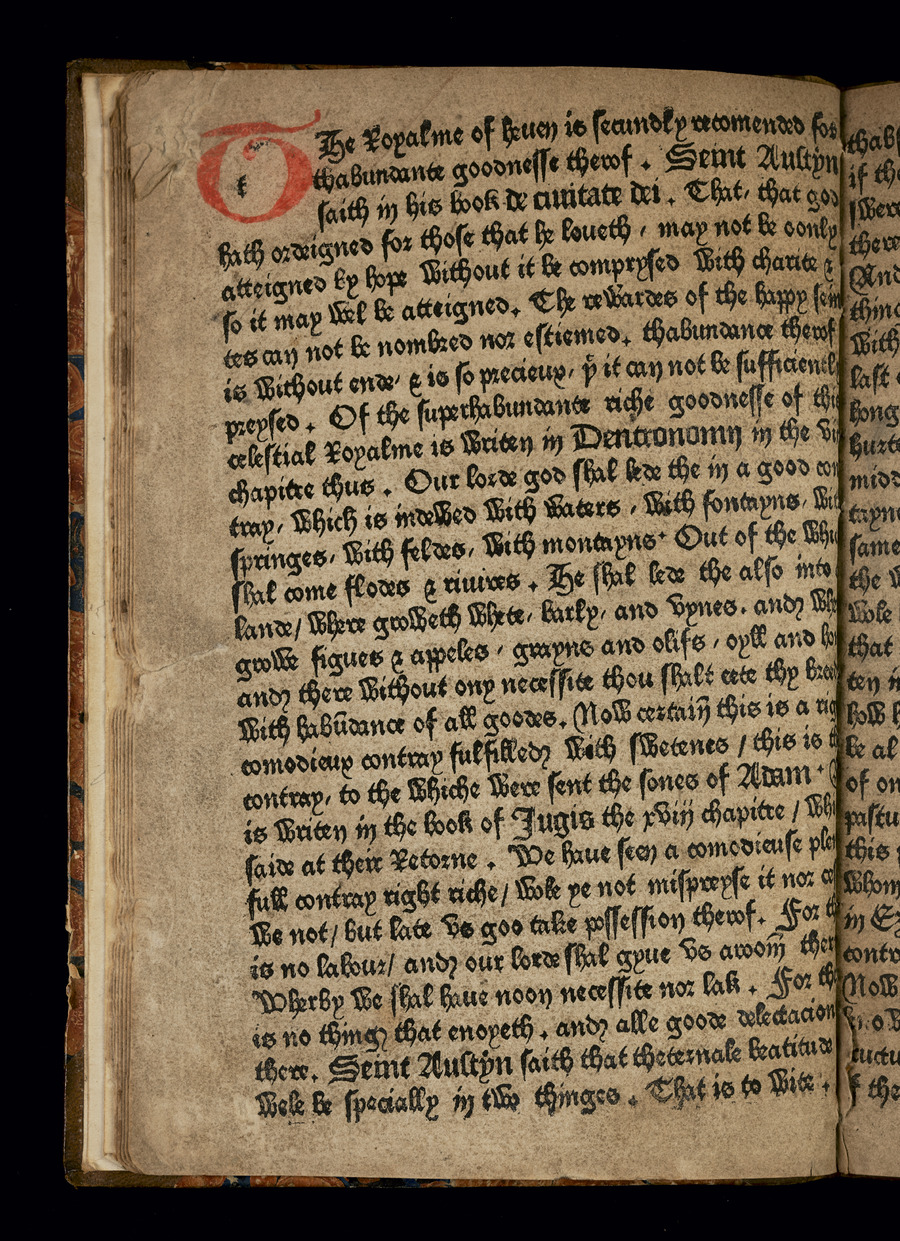 THe Royalme of heuen is secundly recomended for
thabundante goodnesse therof . Seint Austyn
saith in his book de ciuitate dei . That, that god
hath ordeigned for those that he loueth , may not be oonly
atteigned by hope Without it be comprysed With charite &
so it may Wel be atteigned. The reWardes of the happy sein
tes can not be nombred nor estiemed. thabundance therof
is Without ende, & is so precieux, yͭ it can not be sufficiently
preysed . Of the superhabundante riche goodnesse of this
celestial Royalme is Writen in Deutronomy in the
chapitre thus . Our lorde god shal lede the in a good con
tray, Which is indeWed With Waters , With fontayns,
springes, With feldes, With montayns. Out of the
shal come flodes & riuires . He shal lede the also into
lande/ Where groWeth Whete, barly, and vynes. and
groWe figues & appeles , grayns and olifs , oyll and
and there Without ony necessite thou shalt eete thy breed
With habūdance of all goodes. NoW certaiñ this is a
comodieux contray fulfilled With sWetenes / this is
contray, to the Whiche Were sent the sones of Adam .
is Writen in the book of Jugis the xviij chapitre /
saide at their Retorne . We haue seen a comodieuse
full contray right riche/ Wole ye not mispreyse it nor
We not/ but late vs goo take possession therof. For
is no labour/ and our lorde shal gyue vs aroom̄
Wherby We shal haue noon necessite nor lak . For
is no thing that enoyeth . and alle goode delectacion
there. Seint Austyn saith that theternale beatitude
Wele be specially in tWo thinges . That is to Wite .